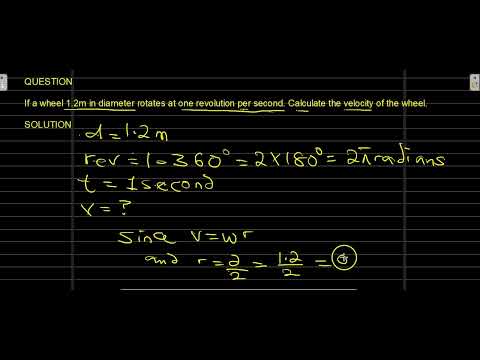 QUESTION
If a wheel 1.2m in diameter rotates at one revolution per second. Calculate the velocity of the wheel.
SOLUTION
d = 1.2m
rev = 1 = 360° = 2×180° = 2π radians
t = 1 second
v = ?
Since v = wr
and r = d/2 = 1.2/2 =